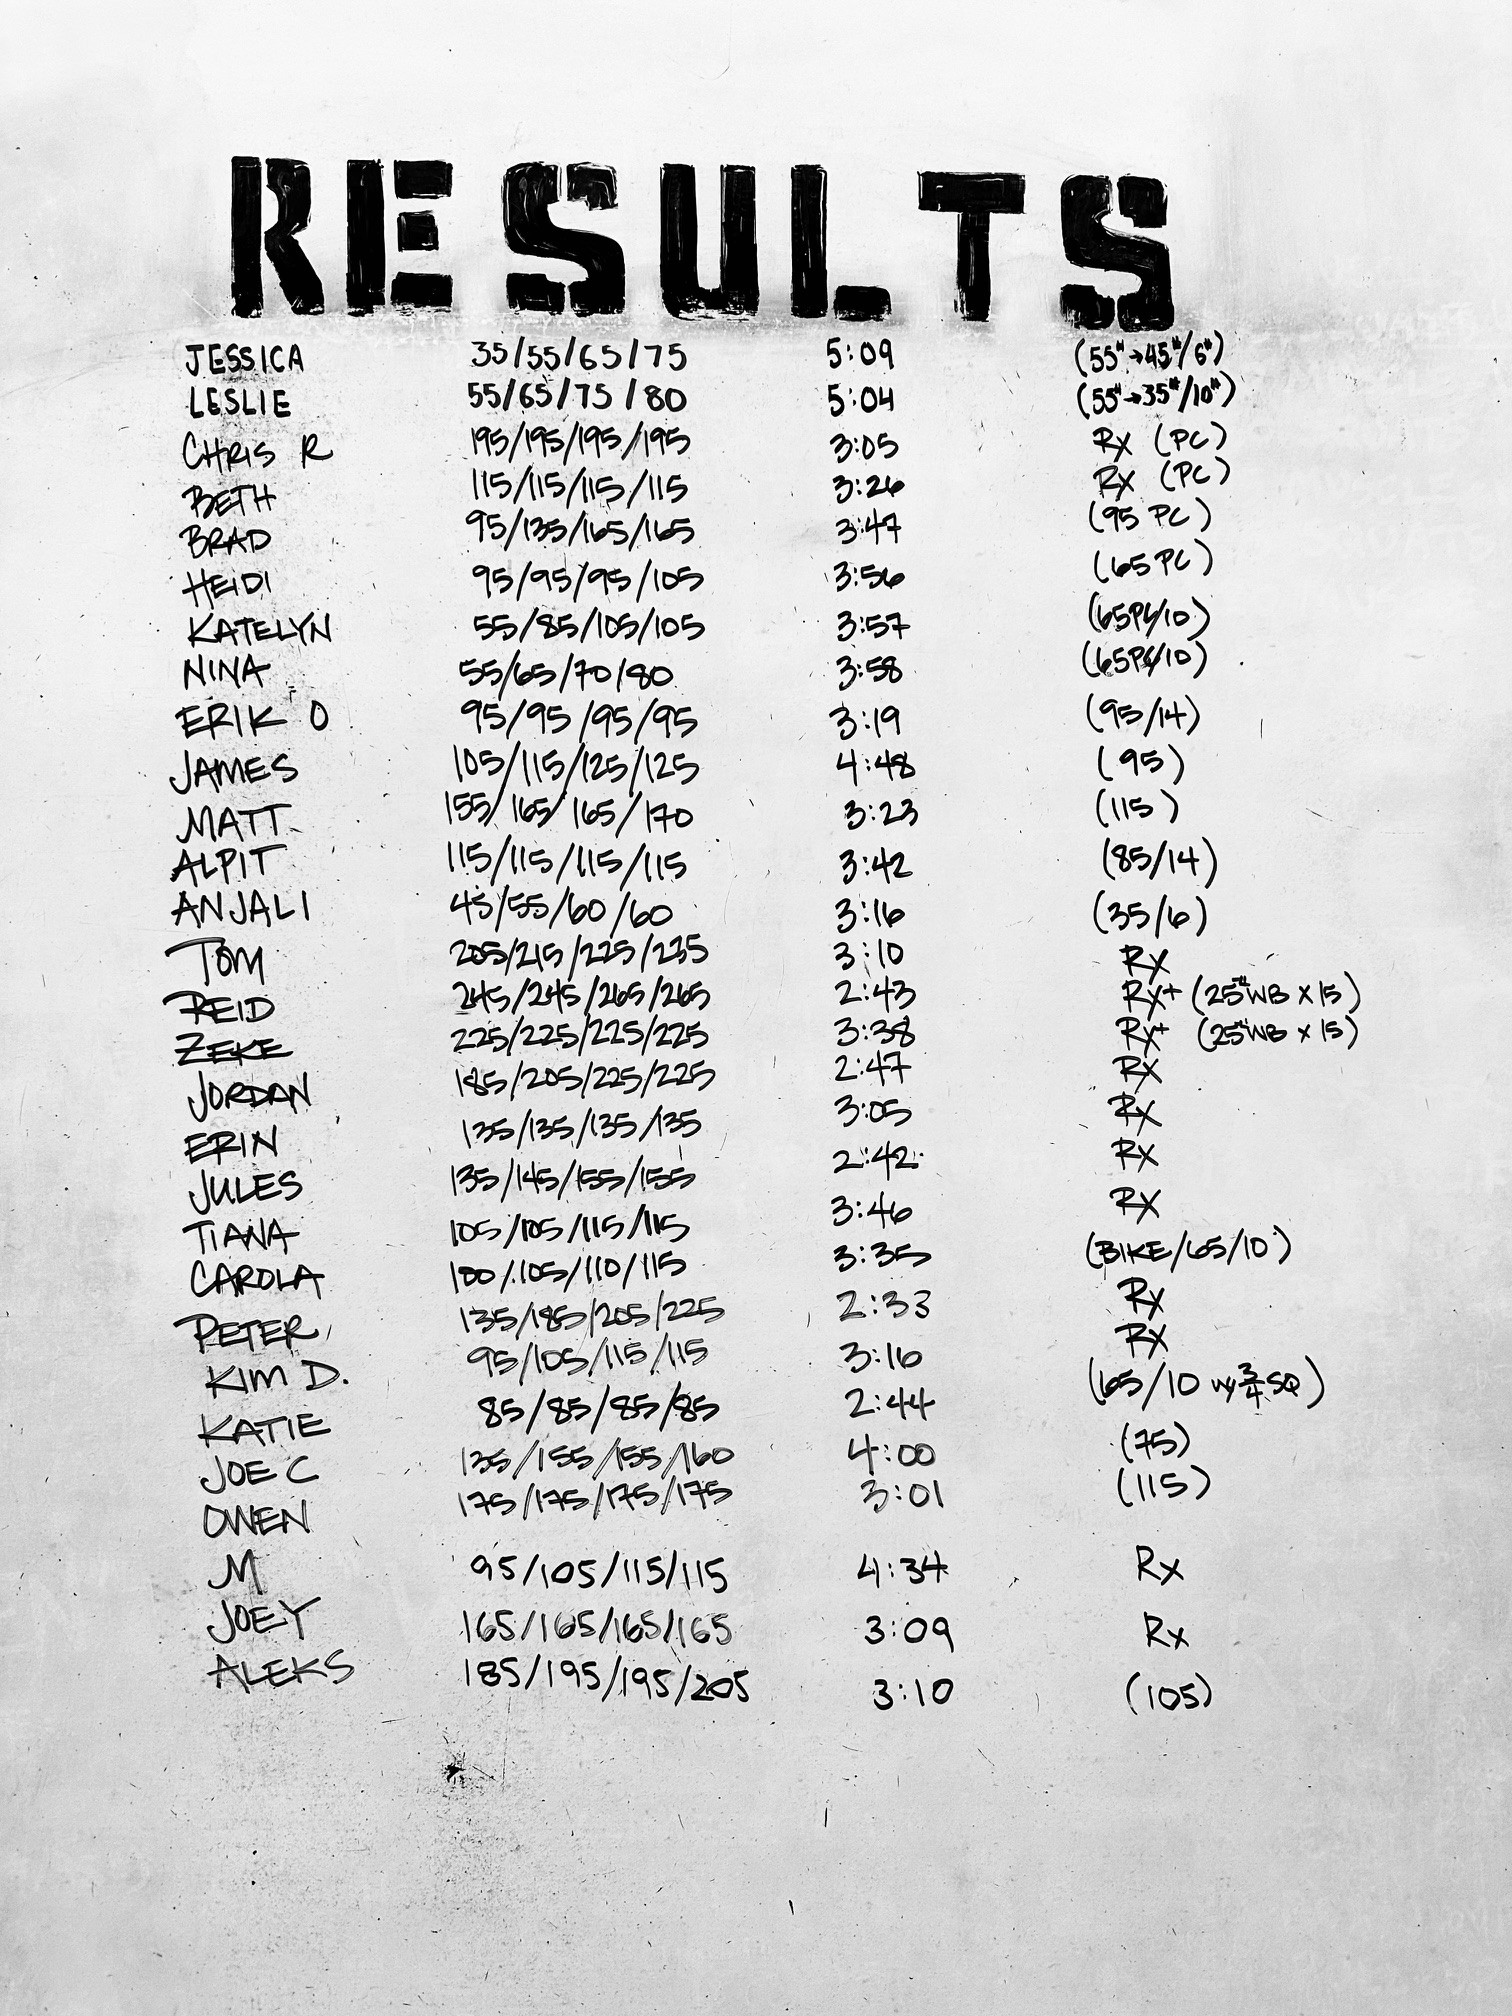 RESULTS
JESSICA 35/55/65/75 5:09 (55#→45#/6#)
LESLIE 55/65/75/80 5:04 (55#→35#/10#)
CHRIS R 195/195/195/195 3:05 RX (PC)
BETH 115/115/115/115 3:26 RX (PC)
BRAD 95/135/165/165 3:47 (95 PC)
HEIDI 95/95/95/105 3:56 (65 PC)
KATELYN 55/85/105/105 3:57 (65PC/10)
NINA 55/65/70/80 3:58 (65PC/10)
ERIK O 95/95/95/95 3:19 (95/14)
JAMES 105/115/125/125 4:48 (95)
MATT 155/165/165/170 3:23 (115)
ALPIT 115/115/115/115 3:42 (85/14)
ANJALI 45/55/60/60 3:16 (35/6)
TOM 205/215/225/235 3:10 RX
REID 245/245/265/265 2:43 RX+ (25#WB X 15)
ZEKE 225/225/225/225 3:38 RX+ (25#WB X 15)
JORDAN 185/205/225/225 2:47 RX
ERIN 135/135/135/135 3:05 RX
JULES 135/145/155/155 2:42 RX
TIANA 105/105/115/115 3:46 RX
CAROLA 100/105/110/115 3:35 (BIKE/65/10)
PETER 135/185/205/225 2:33 RX
KIM D. 95/105/115/115 3:16 RX
KATIE 85/85/85/85 2:44 (65/10 W/ 3/4 SQ)
JOE C 135/155/155/160 4:00 (75)
OWEN 175/175/175/175 3:01 (115)
M 95/105/115/115 4:34 RX
JOEY 165/165/165/165 3:09 RX
ALEKS 185/195/195/205 3:10 (105)